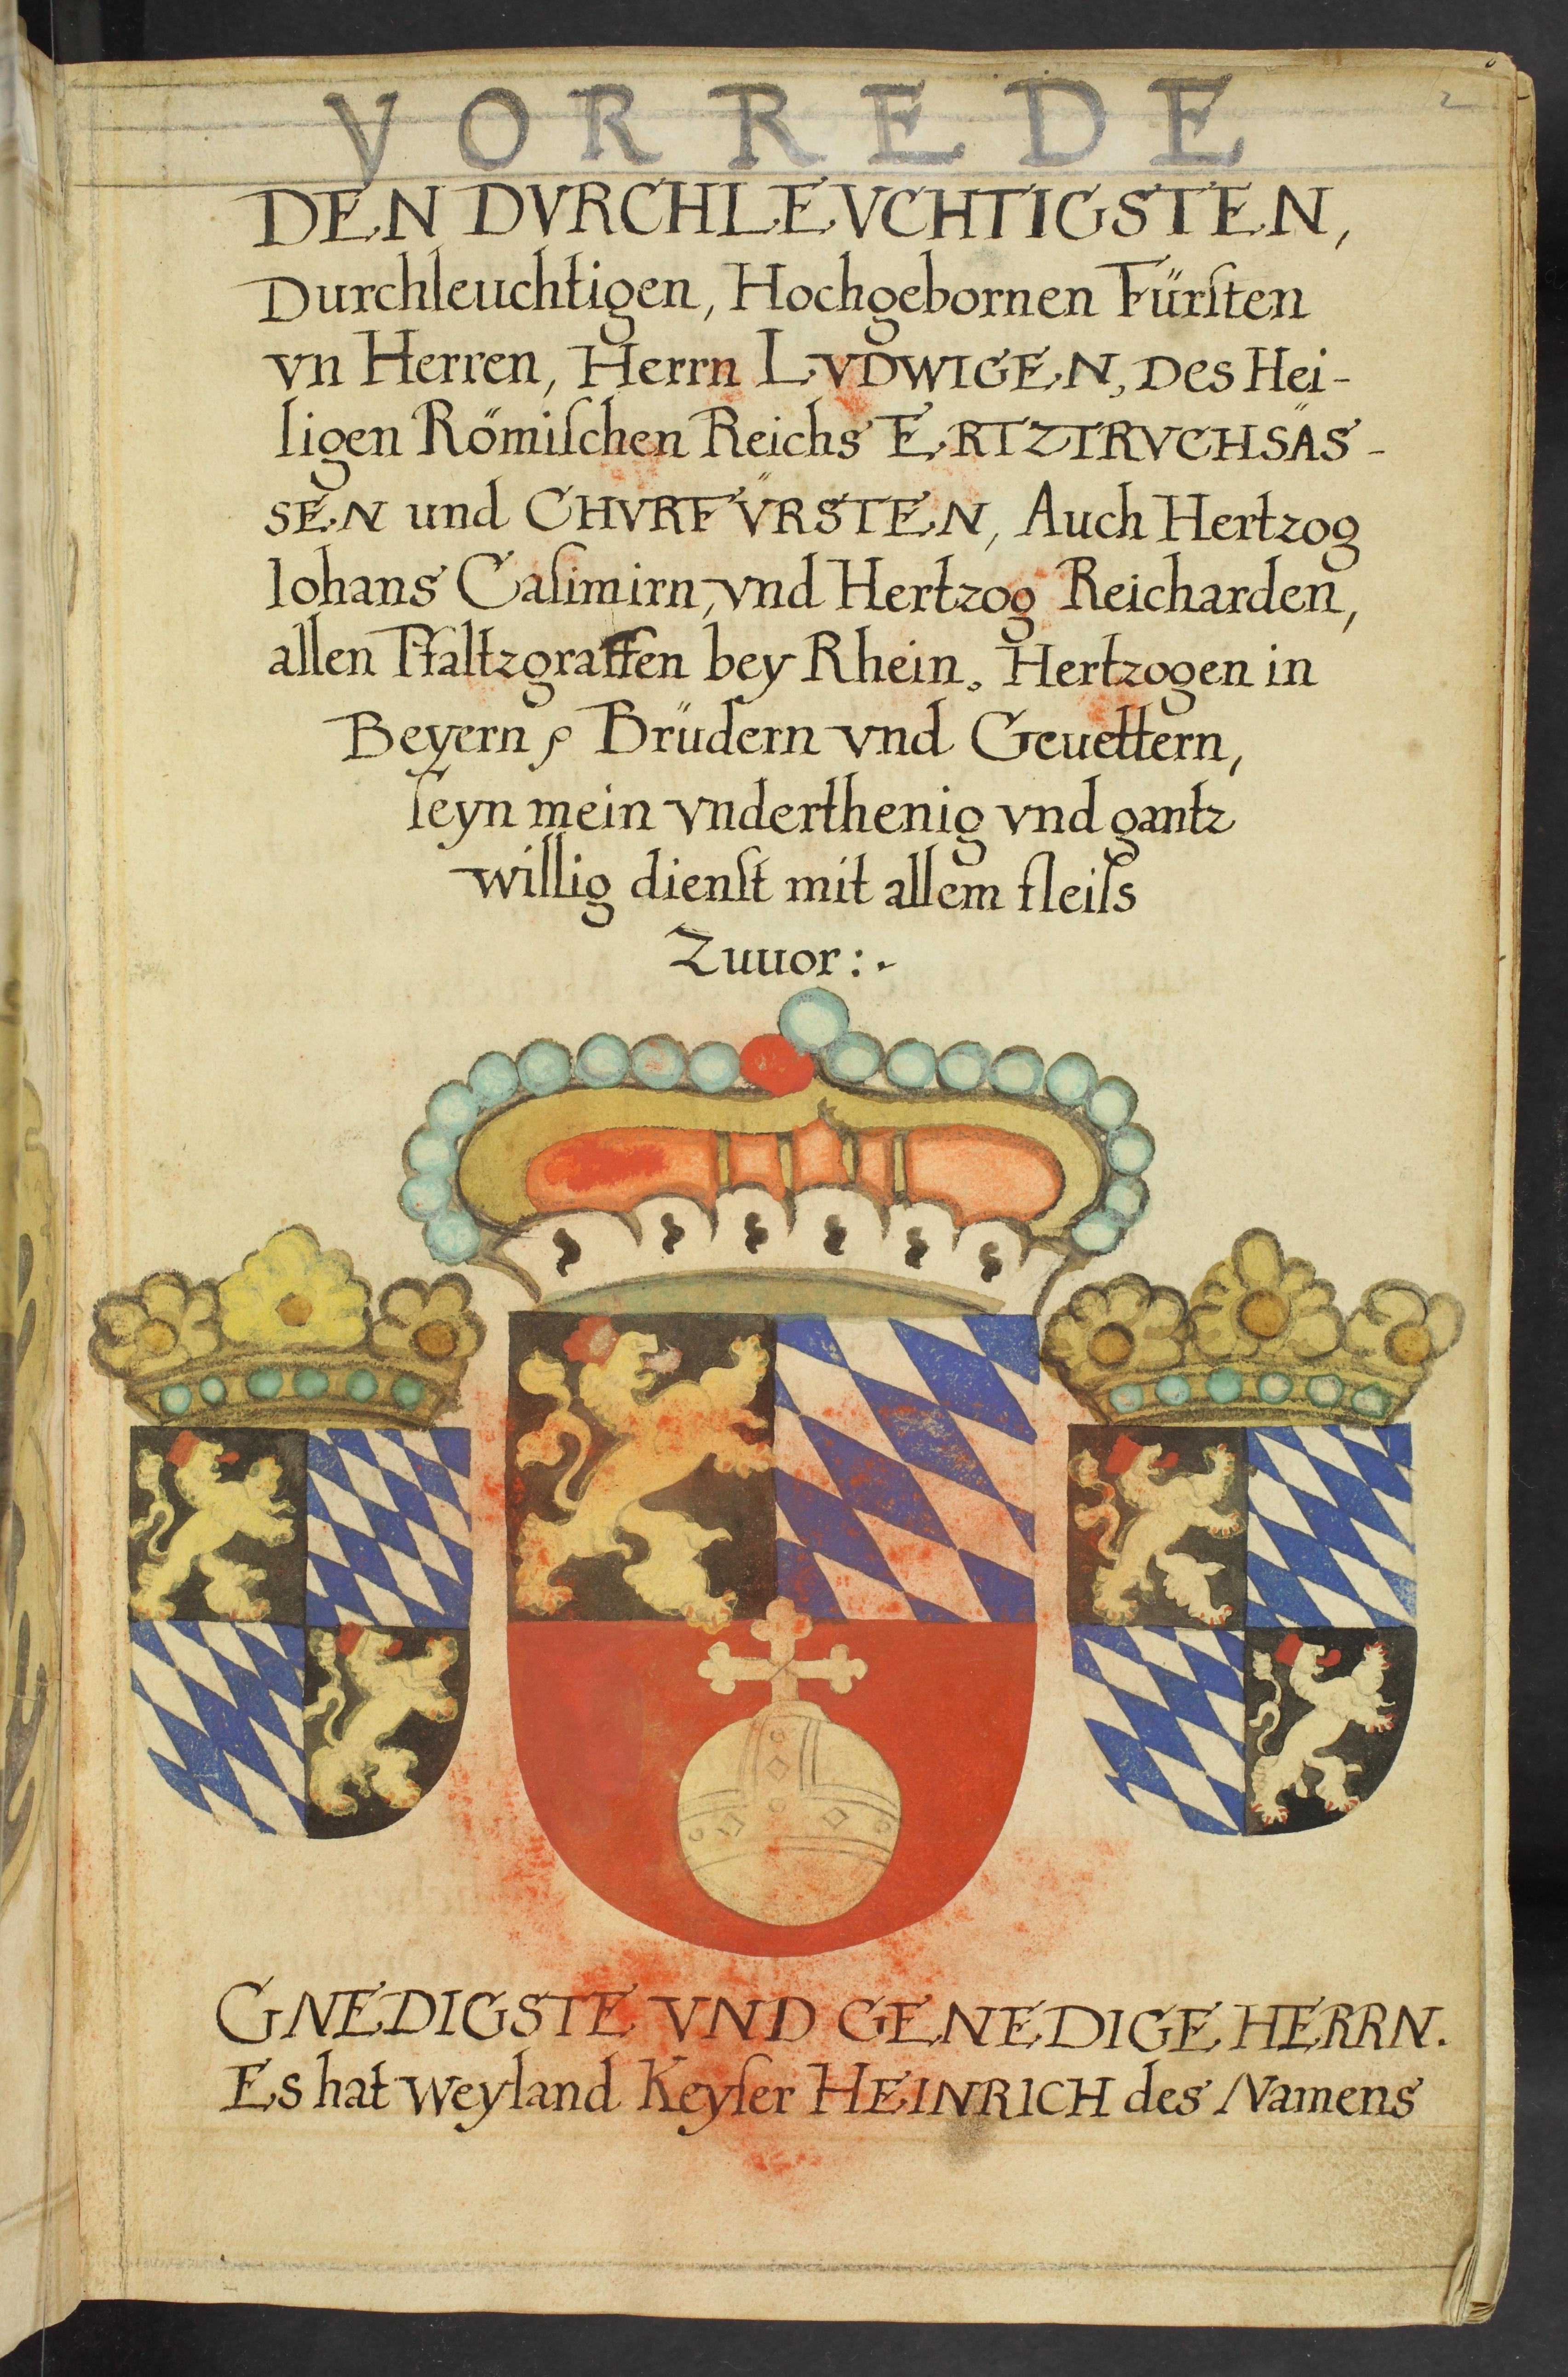 VORREDE
2
DEN DVRCHLEVCHTIGSTEN,
Durchleuchtigen, Hochgebornen Fürſten
vn Herren, Herrn LVDWIGEN, Des Hei-
ligen Römiſchen Reichs ERTZTRVCHSÄS-
SEN und CHVRFÜRSTEN, Auch Hertzog
Iohans Caſimirn, vnd Hertzog Reicharden,
allen Pfaltzgraffen bey Rhein, Hertzogen in
Beyern, Brüdern vnd Geuettern,
ſeyn mein vnderthenig vnd gantz
willig dienſt mit allem fleiſs
Zuuor:.
GNEDIGSTE VND GENEDIGE HERRN.
Es hat Weyland Keyſer HEINRICH des Namens